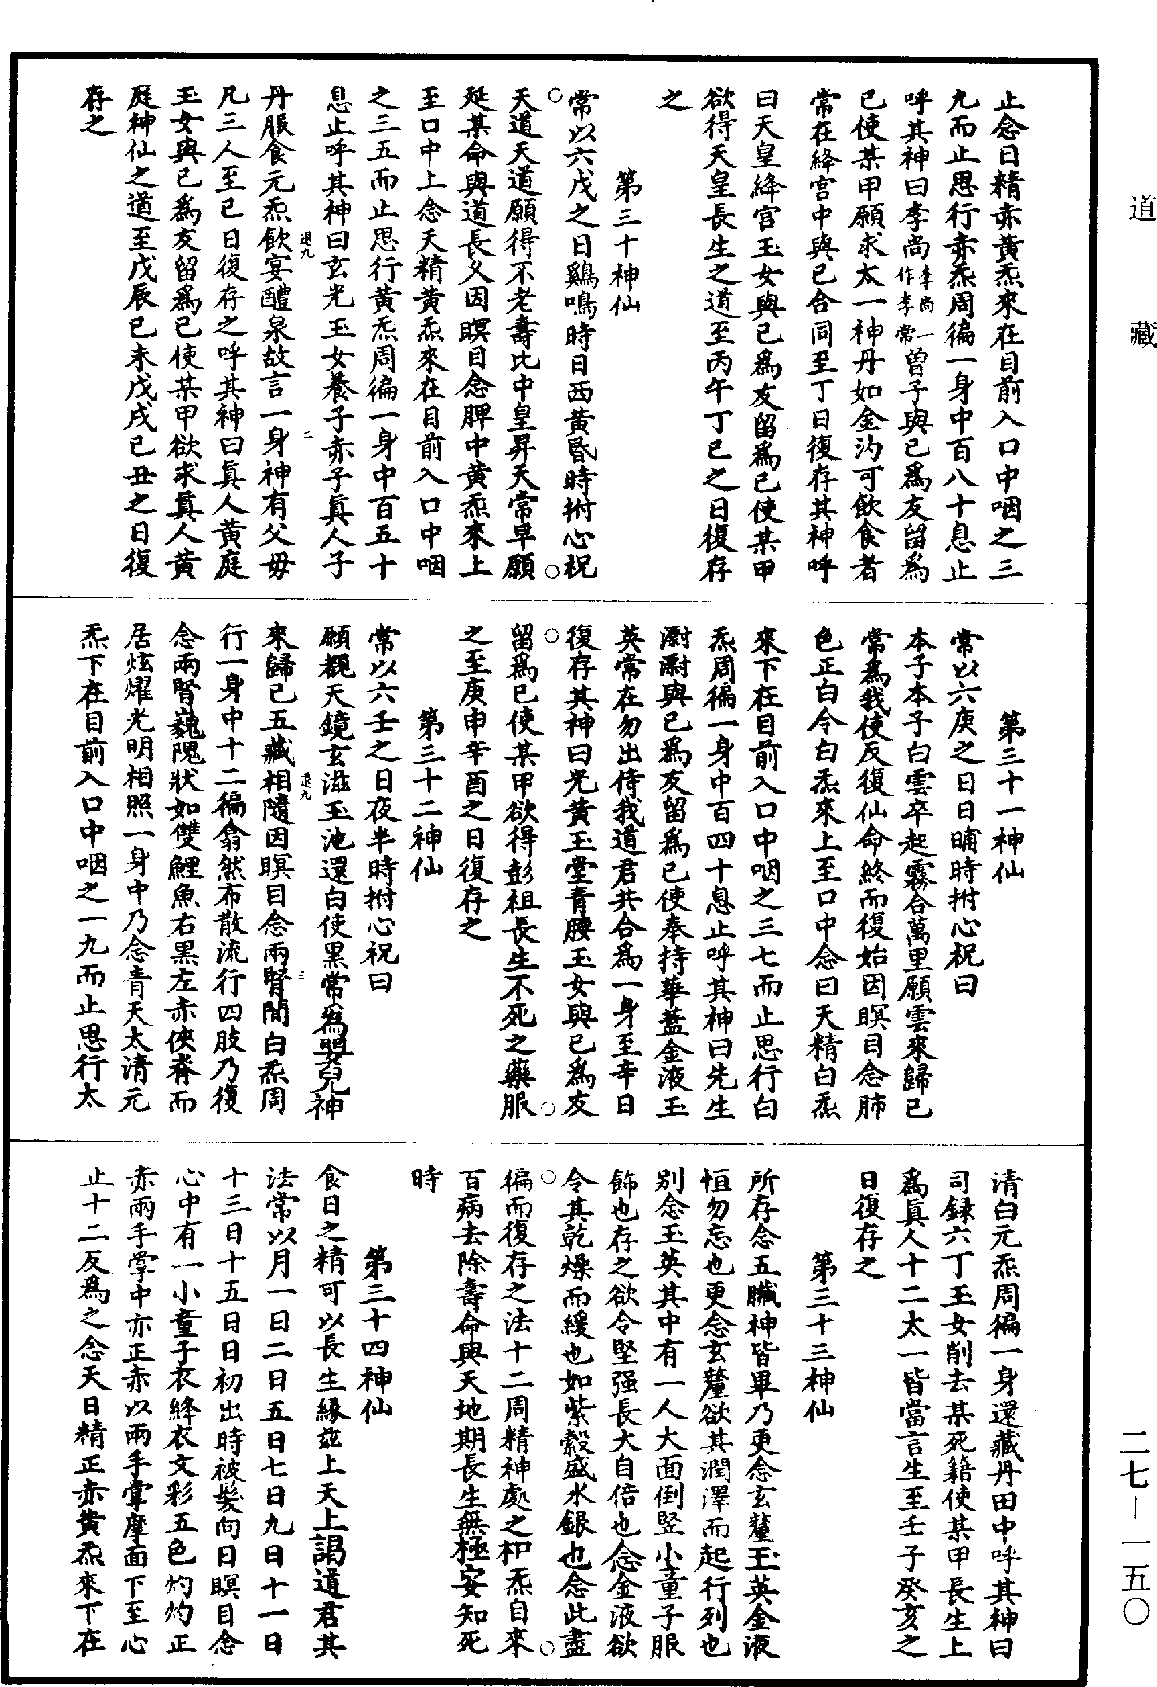 道藏
止念日精赤黃炁來在目前入口中咽之三
九而止思行赤炁周徧一身中百八十息止
呼其神曰李尚李尚一作李常曾子與己爲友留爲
己使某甲願求太一神丹如金沟可飲食者
常在絳宮中與己合同至丁日復存其神呼
曰天皇絳宮玉女與己爲友留爲己使某甲
欲得天皇長生之道至丙午丁巳之日復存
之
第三十神仙
常以六戊之日鷄鳴時日西黃昏時拊心祝
天道天道願得不老壽比中皇昇天常早願
延某命與道長久因瞑目念脾中黃炁來上
至口中上念天精黃炁來在目前入口中咽
之三五而止思行黃炁周徧一身中百五十
息止呼其神曰玄光玉女養子赤子眞人子
退九 二
丹服食元炁飲宴醴泉故言一身神有父母
凡三人至巳日復存之呼其神曰眞人黃庭
玉女與己爲友留爲己使某甲欲求眞人黃
庭神仙之道至戊辰己未戊戌己丑之日復
存之
第三十一神仙
常以六庚之日日晡時拊心祝曰
本子本子白雲卒起霧合萬里願雲來歸己
常爲我使反復仙命終而復始因瞑目念肺
色正白令白炁來上至口中念曰天精白炁
來下在目前入口中咽之三七而止思行白
炁周徧一身中百四十息止呼其神曰先生
灂灂與己爲友留爲己使奉持華蓋金液玉
英常在勿出侍我道君共合爲一身至辛日
復存其神曰光黃玉堂青腰玉女與己爲友
留爲己使某甲欲得彭祖長生不死之藥服
之至庚申辛酉之日復存之
第三十二神仙
常以六壬之日夜半時拊心祝曰
願觀天鏡玄滋玉池還白使黑常爲嬰兒神
退九 三
來歸己五藏相隨因瞑目念兩腎間白炁周
行一身中十二徧翕然布散流行四肢乃復
念兩腎巍隗狀如雙鯉魚右黑左赤俠脊而
居炫燿光明相照一身中乃念青天太清元
炁下在目前入口中咽之一九而止思行太
清白元炁周徧一身還藏丹田中呼其神曰
司録六丁玉女削去某死籍使某甲長生上
爲眞人十二太一皆當言生至壬子癸亥之
日復存之
第三十三神仙
所存念五臟神皆畢乃更念玄釐玉英金液
恒勿忘也更念玄釐欲其潤澤而起行列也
別念玉英其中有一人大面倒竪小童子服
飾也存之欲令堅强長大自倍也念金液欲
令其乾燥而緩也如紫縠盛水銀也念此盡
徧而復存之法十二周精神處之和炁自來
百病去除壽命與天地期長生無極安知死
時
第三十四神仙
食日之精可以長生緣兹上天上謁道君其
法常以月一日二日五日七日九日十一日
十三日十五日日初出時被髮向日瞑目念
心中有一小童子衣絳衣文彩五色灼灼正
赤兩手掌中亦正赤以兩手掌摩面下至心
止十二反爲之念天日精正赤黃炁來下在
二七－一五〇